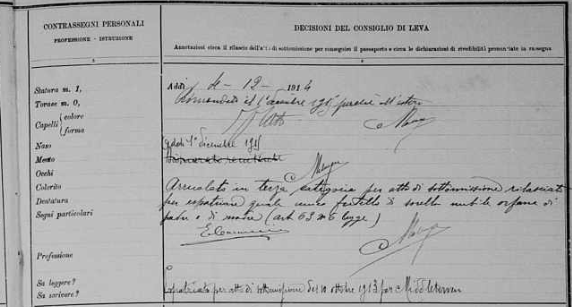 CONTRASSEGNI PERSONALI
PROFESSIONE - ISTRUZIONE
DECISIONI DEL CONSIGLIO DI LEVA
Annotazioni circa il rilascio dell'atto di sottomissione per conseguire il passaporto e circa le dichiarazioni di rivedibilità pronunziate in rassegna
Statura m. 1,
Torace m. 0,
Capelli { colore
forma
Naso
Mento
Occhi
Colorito
Dentatura
Segni particolari
Professione
Sa leggere?
Sa scrivere?
Addì 4 - 12 - 1914
Rimandato al 1° dicembre 1915 perché all'estero
Addì 1° dicembre 1915
Arruolato in terza categoria per atto di sottomissione rilasciato
per espatriare quale unico fratello di sorella nubile orfano di
padre e di madre (art 63 legge)
Espatriato per atto di sottomissione del 10 ottobre 1913 per